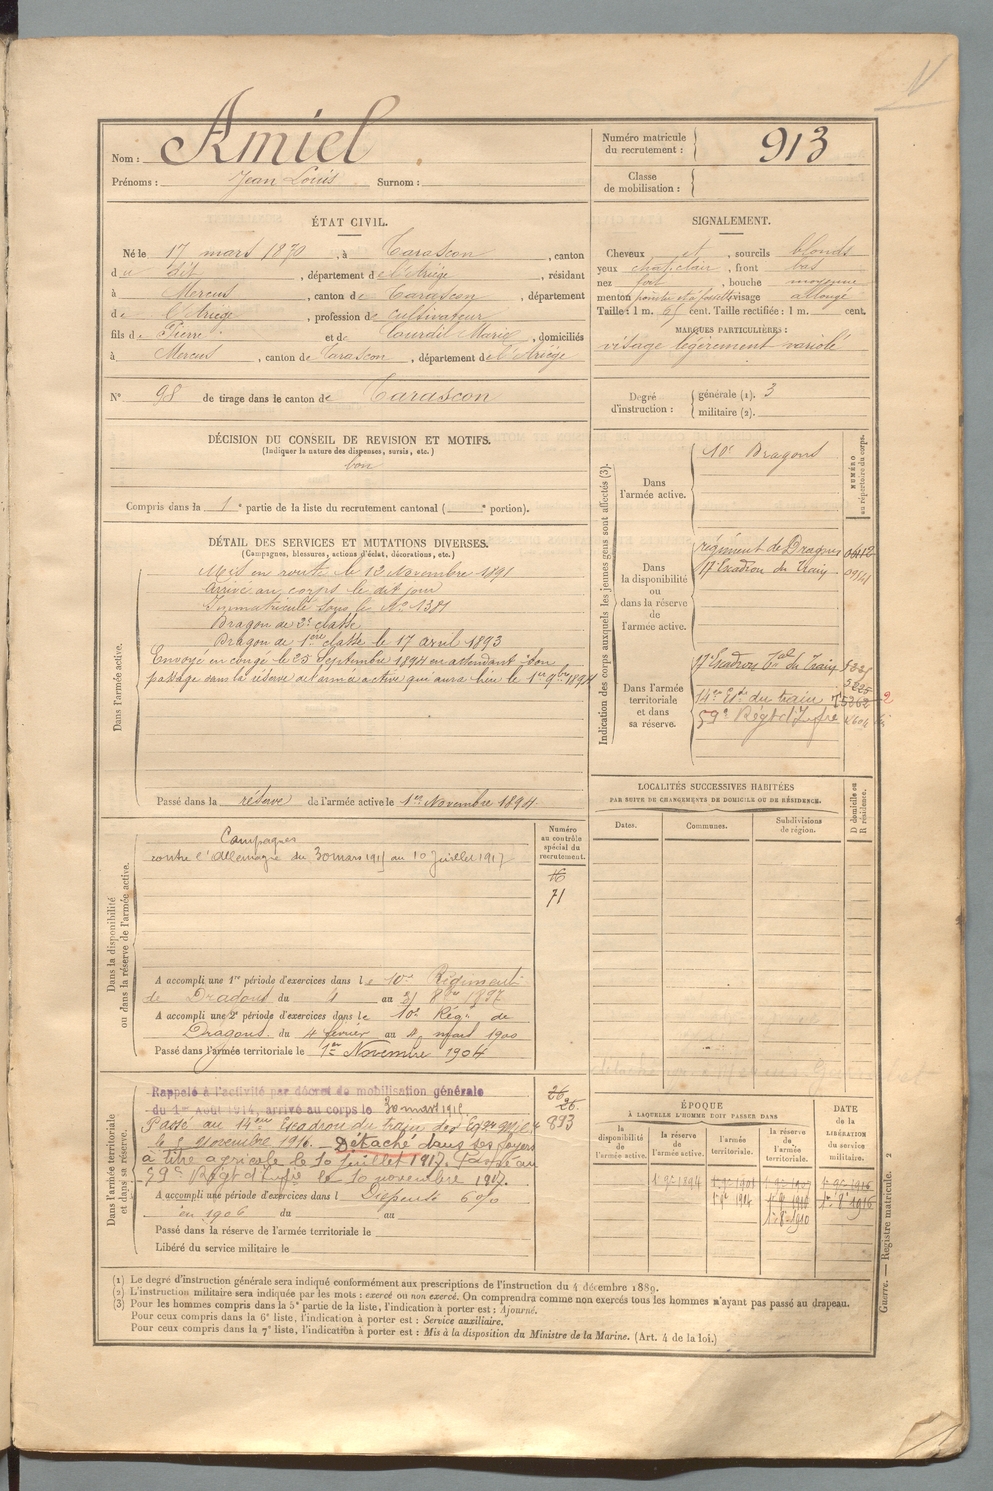 Nom : Amiel
Prénoms : Jean Louis Surnom :
Numéro matricule du recrutement : 913
Classe de mobilisation :
ÉTAT CIVIL.
Né le 17 mars 1870, à Tarascon, canton
du dit, département de l'Ariège, résidant
à Mercus, canton de Tarascon, département
de l'Ariège, profession de cultivateur
fils de Pierre et de Marie, domiciliés
à Mercus, canton de Tarascon, département de l'Ariège
N° 98 de tirage dans le canton de Tarascon
SIGNALEMENT.
Cheveux et, sourcils blonds
yeux chat. clair, front bas
nez fort, bouche moyenne
menton pointu et à fossette visage allongé
Taille : 1 m. 65 cent. Taille rectifiée : 1 m. cent.
MARQUES PARTICULIÈRES :
visage légèrement variolé
Degré d'instruction : générale (1). 3
militaire (2).
DÉCISION DU CONSEIL DE REVISION ET MOTIFS.
(Indiquer la nature des dispenses, sursis, etc.)
bon
Compris dans la 1e partie de la liste du recrutement cantonal ( e portion).
DÉTAIL DES SERVICES ET MUTATIONS DIVERSES.
(Campagnes, blessures, actions d'éclat, décorations, etc.)
Dans l'armée active.
Mis en route le 12 Novembre 1891
arrivé au corps le dit jour
Immatriculé sous le N°
Dragon de 2e classe
Dragon de 1ère classe le 17 avril 1893
Envoyé en congé le 25 Septembre 1894 en attendant son
passage dans la réserve de l'armée active qui aura lieu le 1er 9bre 1894
Passé dans la réserve de l'armée active le 1er Novembre 1894.
Indication des corps auxquels les jeunes gens sont affectés (3).
NUMÉRO au répertoire du corps.
Dans l'armée active.
10e Dragons
Dans la disponibilité ou dans la réserve de l'armée active.
régiment de Dragons 0412
17e Escadron du Train
Dans l'armée territoriale et dans sa réserve.
17e Escadron Tal du Train
14e Eon du train
59e Régt d'Infrie
LOCALITÉS SUCCESSIVES HABITÉES
PAR SUITE DE CHANGEMENTS DE DOMICILE OU DE RÉSIDENCE.
Dates. Communes. Subdivisions de région.
D domicile ou R résidence.
Dans la disponibilité ou dans la réserve de l'armée active.
Numéro au contrôle spécial du recrutement.
16
71
Campagnes
contre l'Allemagne du 30 mars 1915 au 10 Juillet 1917
A accompli une 1re période d'exercices dans le 10e Régiment
de Dragons du 4 au 31 8bre 1897
A accompli une 2e période d'exercices dans le 10e Régt de
Dragons du 4 février au 4 mars 1900
Passé dans l'armée territoriale le 1er Novembre 1904
Dans l'armée territoriale et dans sa réserve.
Rappelé à l'activité par décret de mobilisation générale
du 1er Août 1914, arrivé au corps le 30 mars 1915
26
26
893
Passé au 14ème Escadron du train des Eqges Milres
le 5 Novembre 1916. Détaché dans ses foyers
à titre agricole le 10 juillet 1917. Passé au
59e Régt d'Infie le 10 novembre 1917.
A accompli une période d'exercices dans l Dispensé 6%
en 1906 du au
Passé dans la réserve de l'armée territoriale le
Libéré du service militaire le
ÉPOQUE
À LAQUELLE L'HOMME DOIT PASSER DANS
la disponibilité de l'armée active. la réserve de l'armée active. l'armée territoriale. la réserve de l'armée territoriale.
DATE de la LIBÉRATION du service militaire.
1er 9bre 1894 1er 9bre 1904 1er 9bre 1910 1er 9bre 1916
1er 8bre 1904 1er 8bre 1910 1er 8bre 1916
1er 8bre 1910
(1) Le degré d'instruction générale sera indiqué conformément aux prescriptions de l'instruction du 4 décembre 1889.
(2) L'instruction militaire sera indiquée par les mots : exercé ou non exercé. On comprendra comme non exercés tous les hommes n'ayant pas passé au drapeau.
(3) Pour les hommes compris dans la 5e partie de la liste, l'indication à porter est : Ajourné.
Pour ceux compris dans la 6e liste, l'indication à porter est : Service auxiliaire.
Pour ceux compris dans la 7e liste, l'indication à porter est : Mis à la disposition du Ministre de la Marine. (Art. 4 de la loi.)
Guerre. — Registre matricule. 2